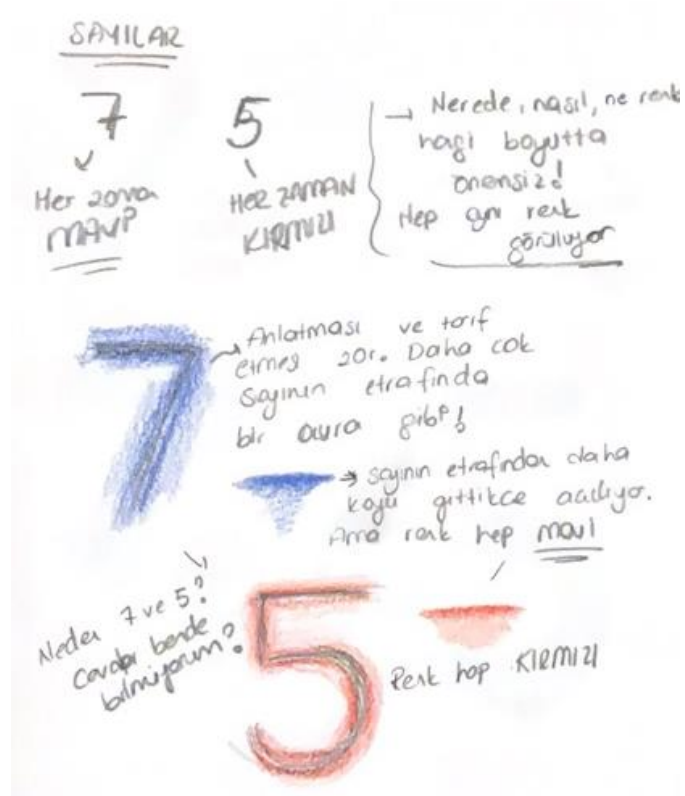 SAYILAR
7
5
Her zaman
MAVİ
HER ZAMAN
KIRMIZI
→ Nerede, nasıl, ne renk
hagi boyutta
önensiz!
Hep aynı renk
görülüyor
7
→ Anlatması ve tarif
etmeş zor. Daha cok
Sayının etrafında
bir aura gibi!
→ sayının etrafından daha
koyu gittikce acılıyor.
Ama renk hep mavi
Neden 7 ve 5?
Cevabı bende
bilmiyorum?
5
Renk hep KIRMIZI